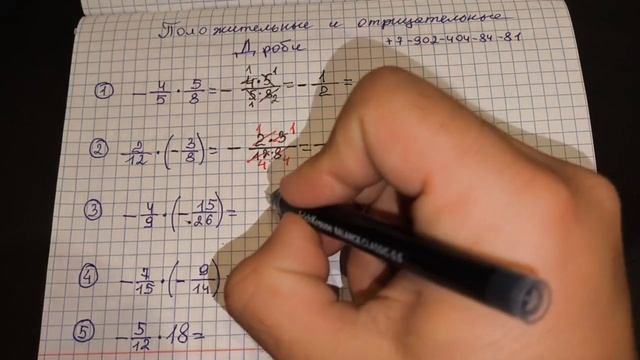 Положительные и отрицательные
Дроби +7-902-404-84-81
① -4/5 · 5/8 = - 4·5/5·8 = - 1/2 =
② 2/12 · (-3/8) = - 2·3/12·8 = -
③ -4/9 · (-15/26) =
④ -7/15 · (-9/14)
⑤ -5/12 · 18 =